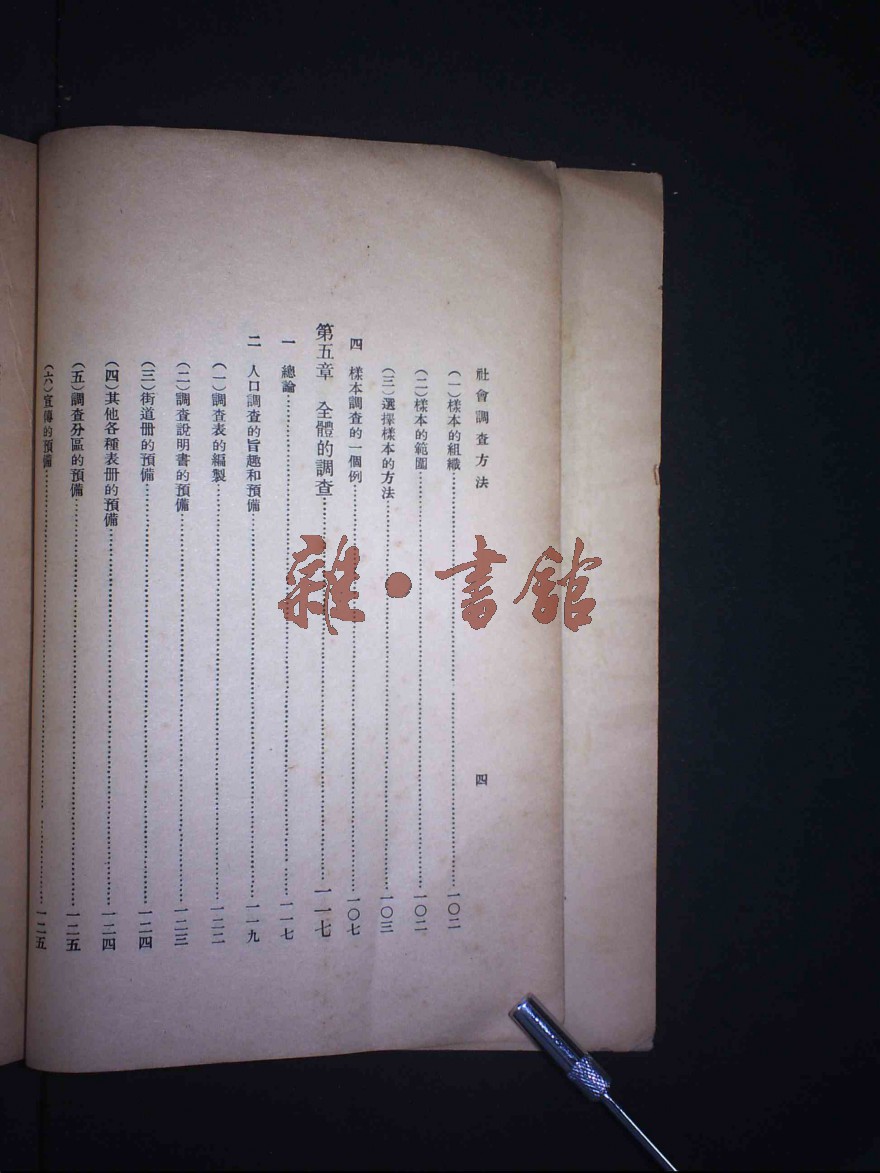 社會調查方法 四
(一)樣本的組織 一〇二
(二)樣本的範圍 一〇二
(三)選擇樣本的方法 一〇三
四 樣本調查的一個例 一〇七
第五章 全體的調查 一一七
一 總論 一一七
二 人口調查的旨趣和預備 一一九
(一)調查表的編製 一二二
(二)調查說明書的預備 一二三
(三)街道册的預備 一二四
(四)其他各種表册的預備 一二四
(五)調查分區的預備 一二五
(六)宣傳的預備 一二五
雜·書館